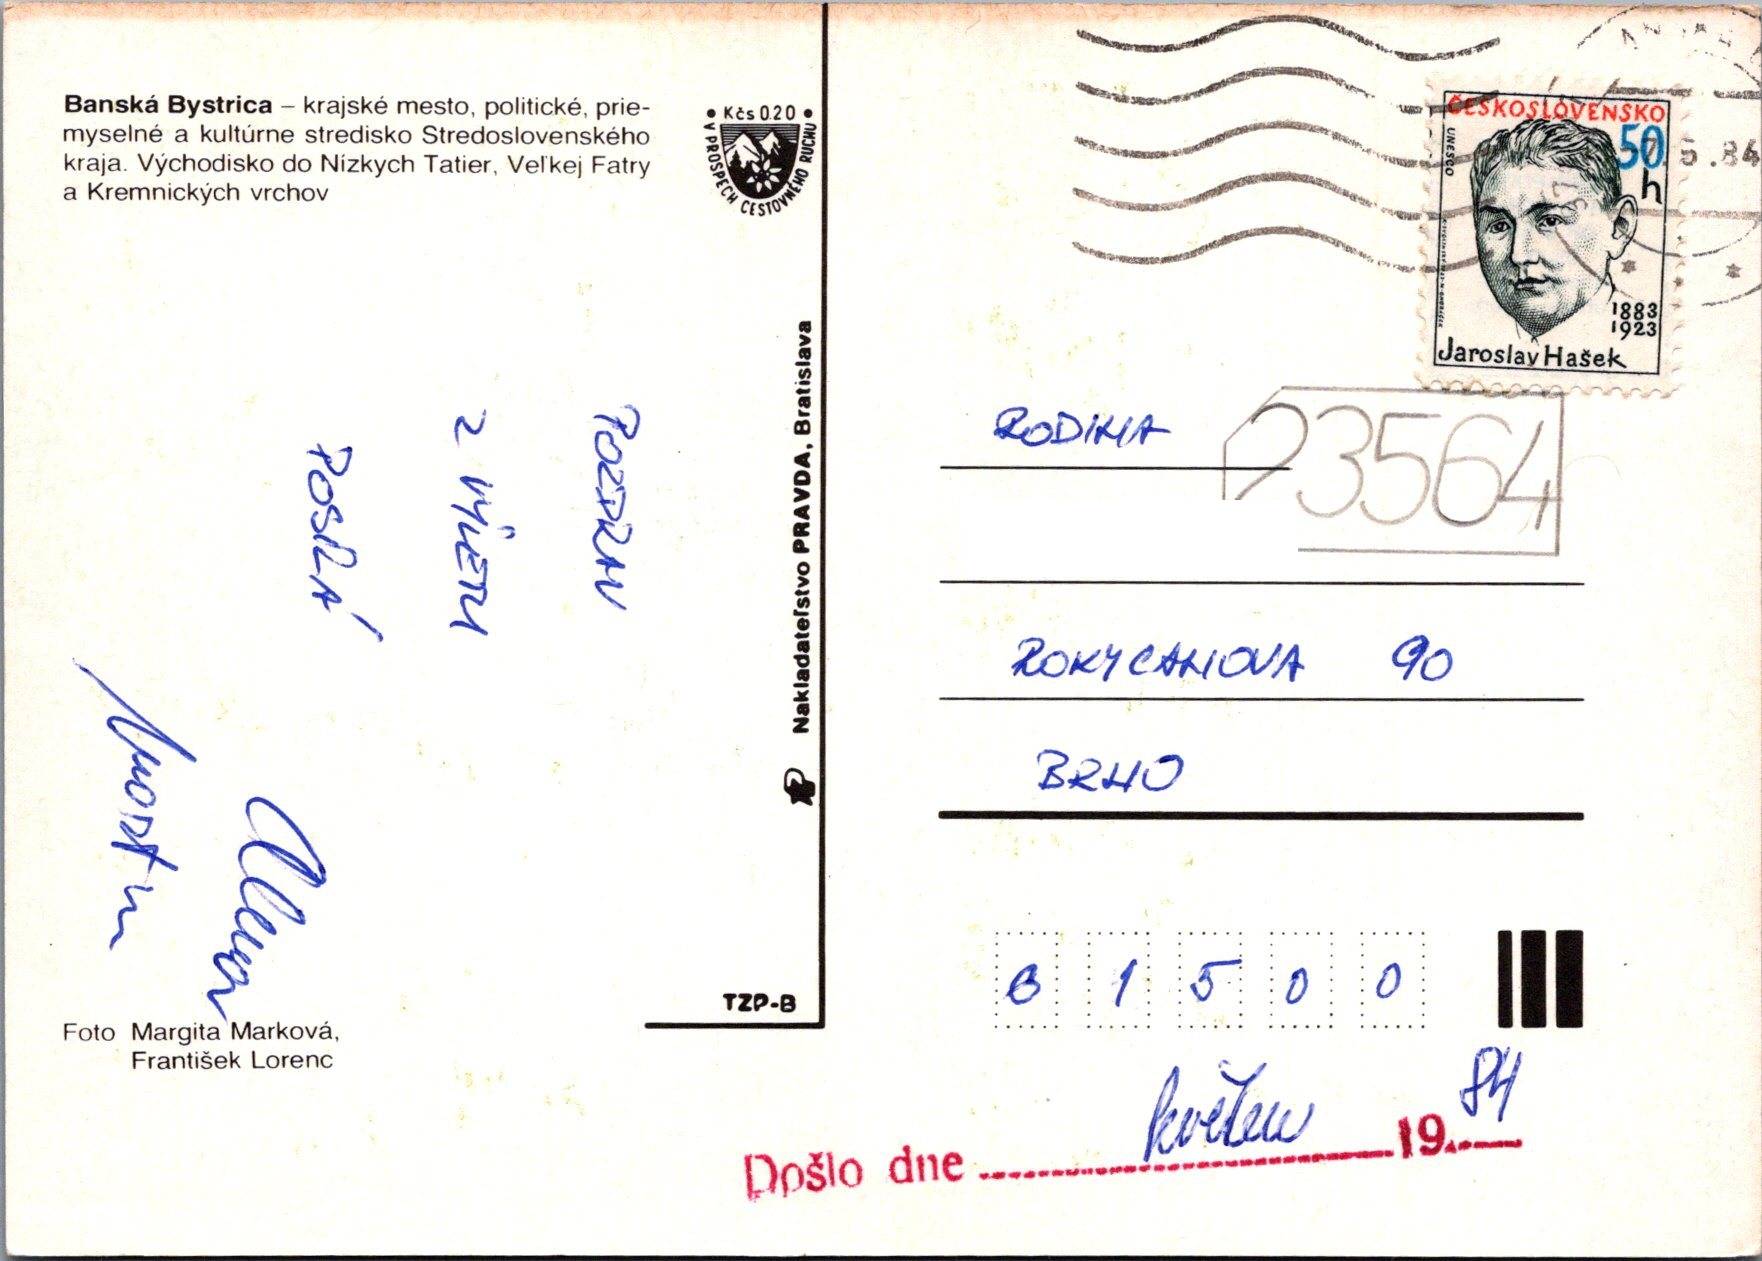 Banská Bystrica – krajské mesto, politické, prie-
myselné a kultúrne stredisko Stredoslovenského
kraja. Východisko do Nízkych Tatier, Veľkej Fatry
a Kremnických vrchov
• Kčs 0.20 •
V PROSPECH CESTOVNÉHO RUCHU
POZDRAV
Z VÝLETU
POSÍLÁ
Foto Margita Marková,
František Lorenc
Nakladateľstvo PRAVDA, Bratislava
TZP-B
ČESKOSLOVENSKO
50
h
UNESCO
1883
1923
Jaroslav Hašek
5.84
23564
RODINA
ROKYCANOVA 90
BRNO
61500
Došlo dne květen 1984